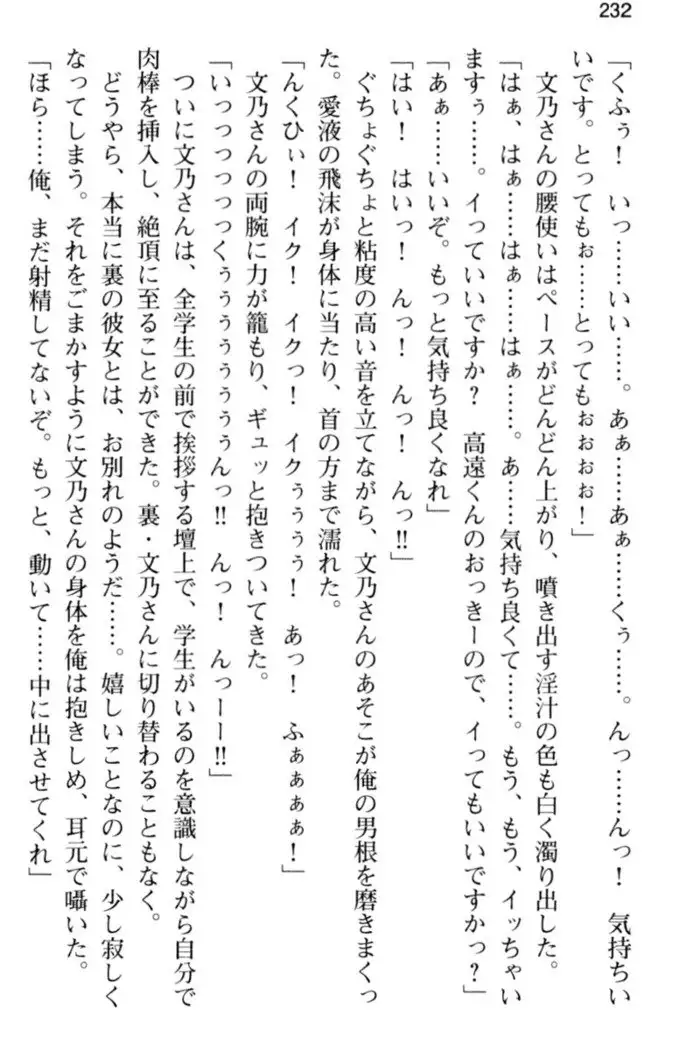 232
「くふぅ！　いっ……いい……。あぁ……あぁ……くぅ……。んっ……んっ！　気持ちい
いです。とってもぉ……とってもぉぉぉぉ！」
文乃さんの腰使いはペースがどんどん上がり、噴き出す淫汁の色も白く濁り出した。
「はぁ、はぁ……はぁ……はぁ……。あ……気持ち良くて……。もう、もう、イッちゃい
ますぅ……。イっていいですか？　高遠くんのおっきーので、イってもいいですかっ？」
「あぁ……いいぞ。もっと気持ち良くなれ」
「はい！　はいっ！　んっ！　んっ！　んっ!!」
ぐちょぐちょと粘度の高い音を立てながら、文乃さんのあそこが俺の男根を磨きまくっ
た。愛液の飛沫が身体に当たり、首の方まで濡れた。
「んくひぃ！　イク！　イクっ！　イクぅぅぅ！　あっ！　ふぁぁぁぁ！」
文乃さんの両腕に力が籠もり、ギュッと抱きついてきた。
「いっっっっっっくぅぅぅぅぅぅぅぅんっ!!　んっ！　んっーー!!」
ついに文乃さんは、全学生の前で挨拶する壇上で、学生がいるのを意識しながら自分で
肉棒を挿入し、絶頂に至ることができた。裏・文乃さんに切り替わることもなく。
どうやら、本当に裏の彼女とは、お別れのようだ……。嬉しいことなのに、少し寂しく
なってしまう。それをごまかすように文乃さんの身体を俺は抱きしめ、耳元で囁いた。
「ほら……俺、まだ射精してないぞ。もっと、動いて……中に出させてくれ」